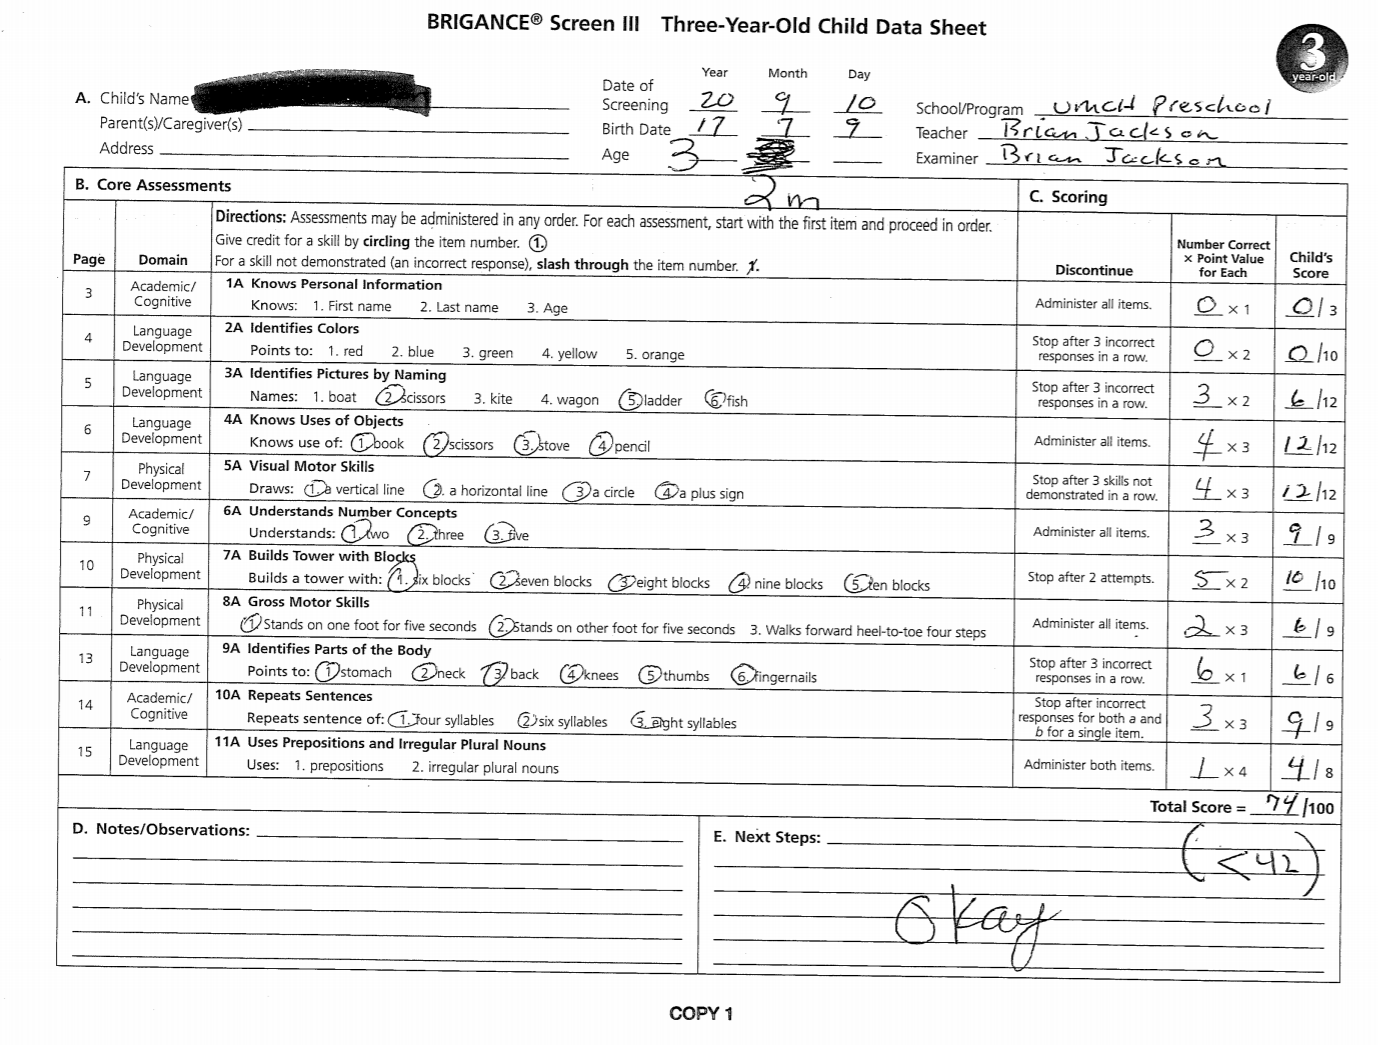 BRIGANCE® Screen III Three-Year-Old Child Data Sheet
3
year-old
A. Child's Name
Parent(s)/Caregiver(s)
Address
Year Month Day
Date of Screening 20 9 10
Birth Date 17 7 9
Age 3
2m
School/Program UMCH Preschool
Teacher Brian Jackson
Examiner Brian Jackson
B. Core Assessments
C. Scoring
Page
Domain
Directions: Assessments may be administered in any order. For each assessment, start with the first item and proceed in order.
Give credit for a skill by circling the item number. 1.
For a skill not demonstrated (an incorrect response), slash through the item number. 1.
Discontinue
Number Correct
× Point Value
for Each
Child's
Score
3
Academic/
Cognitive
1A Knows Personal Information
Knows: 1. First name 2. Last name 3. Age
Administer all items.
0 × 1
0 / 3
4
Language
Development
2A Identifies Colors
Points to: 1. red 2. blue 3. green 4. yellow 5. orange
Stop after 3 incorrect
responses in a row.
0 × 2
0 /10
5
Language
Development
3A Identifies Pictures by Naming
Names: 1. boat 2. scissors 3. kite 4. wagon 5. ladder 6. fish
Stop after 3 incorrect
responses in a row.
3 × 2
6 /12
6
Language
Development
4A Knows Uses of Objects
Knows use of: 1. book 2. scissors 3. stove 4. pencil
Administer all items.
4 × 3
12 /12
7
Physical
Development
5A Visual Motor Skills
Draws: 1. a vertical line 2. a horizontal line 3. a circle 4. a plus sign
Stop after 3 skills not
demonstrated in a row.
4 × 3
12 /12
9
Academic/
Cognitive
6A Understands Number Concepts
Understands: 1. two 2. three 3. five
Administer all items.
3 × 3
9 / 9
10
Physical
Development
7A Builds Tower with Blocks
Builds a tower with: 1. six blocks 2. seven blocks 3. eight blocks 4. nine blocks 5. ten blocks
Stop after 2 attempts.
5 × 2
10 /10
11
Physical
Development
8A Gross Motor Skills
1. Stands on one foot for five seconds 2. Stands on other foot for five seconds 3. Walks forward heel-to-toe four steps
Administer all items.
2 × 3
6 / 9
13
Language
Development
9A Identifies Parts of the Body
Points to: 1. stomach 2. neck 3. back 4. knees 5. thumbs 6. fingernails
Stop after 3 incorrect
responses in a row.
6 × 1
6 / 6
14
Academic/
Cognitive
10A Repeats Sentences
Repeats sentence of: 1. four syllables 2. six syllables 3. eight syllables
Stop after incorrect
responses for both a and
b for a single item.
3 × 3
9 / 9
15
Language
Development
11A Uses Prepositions and Irregular Plural Nouns
Uses: 1. prepositions 2. irregular plural nouns
Administer both items.
1 × 4
4 / 8
Total Score = 74 /100
D. Notes/Observations:
E. Next Steps:
(<42)
Okay
COPY 1